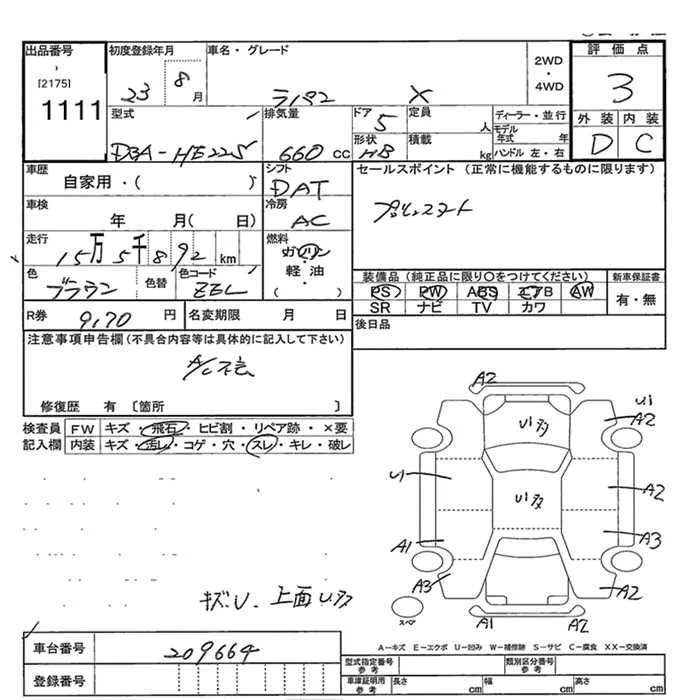 出品番号
[2175]
1111
初度登録年月
23 8月
車名・グレード
ラパン X
2WD
・
4WD
評価点
3
外装 内装
D C
型式
DBA-HE22S
排気量
660 cc
ドア
5
形状
HB
定員
人
積載
kg
ディーラー・並行
モデル年式 年
ハンドル 左・右
車歴
自家用・( )
シフト
DAT
セールスポイント(正常に機能するものに限ります)
プッシュスタート
車検
年 月( 日)
冷房
AC
走行
15万5千892km
燃料
ガソリン
軽油
( ・ )
色
ブラウン
色替
色コード
ZZL
装備品(純正品に限り○をつけてください)
PS PW ABS エアB AW
SR ナビ TV カワ
新車保証書
有・無
R券 9170 円
名変期限 月 日
後日品
注意事項申告欄(不具合内容等は具体的に記入して下さい)
修復歴 有〔箇所 〕
検査員記入欄
FW キズ・飛石・ヒビ割・リペア跡・×要
内装 キズ・汚レ・コゲ・穴・スレ・キレ・破レ
A2
U1
A2
U多
U1
U多
A2
A1
A3
A3
A2
A1 A2
スペア
キズU、上面U多
A-キズ E-エクボ U-凹み W-補修跡 S-サビ C-腐食 XX-交換済
車台番号 209664
登録番号
型式指定番号 参考
類別区分番号 参考
車庫証明用 参考 長さ cm 幅 cm 高さ cm